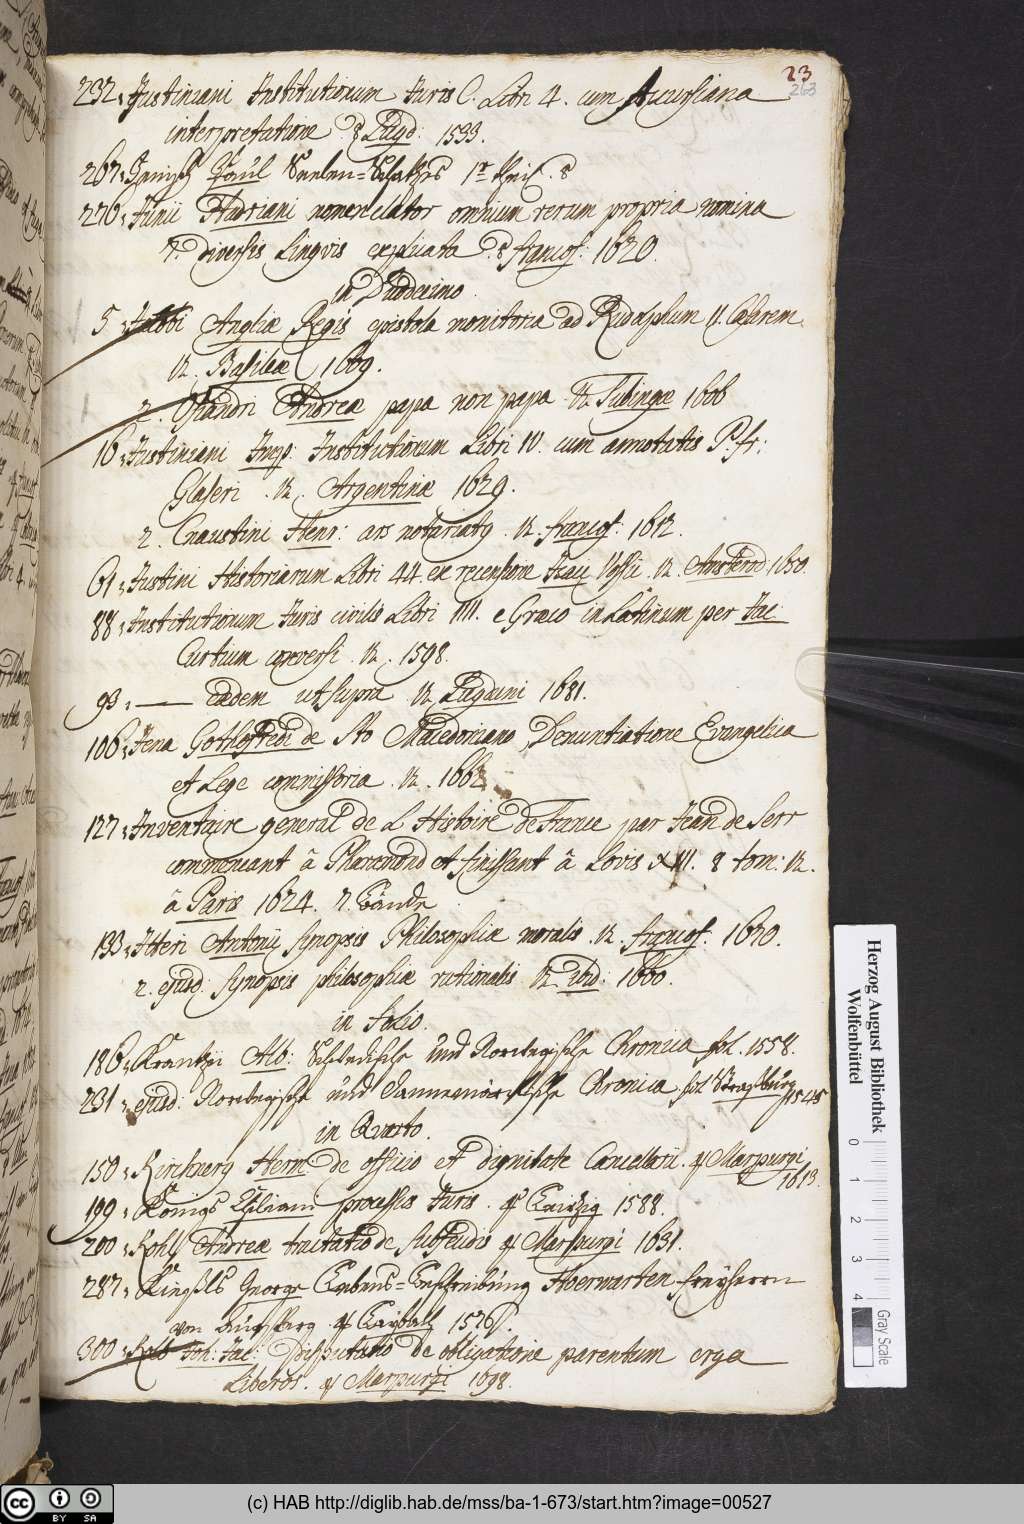 23
263
232. Justiniani Institutionum Juris C. Libri 4. cum Accursiana
interpretatione 8 Lugd: 1593.
267. Janisch Paul Seelen-Schatzes 1r theil. 8
276. Junii Hadriani nomenclator omnium rerum propria nomina
7. diversis Lingvis explicata 8 francof: 1620.
in Duodecimo
5. Jacobi Angliæ Regis epistola monitoria ad Rudolphum II. Cæsarem
12. Basileæ 1609.
2. Osiandri Andreæ papa non papa 12 Tubingæ 1606
16. Justiniani Imp: Institutionum Libri IV. cum annotatis P. fr:
Glaseri. 12. Argentinæ 1629.
2. Cnaustini Henr: ars notariatg. 12. francof: 1612.
61. Justini Historiarum Libri 44. ex recensione Isaci Vossii. 12. Amsterod 1650.
88. Institutionum Juris civilis Libri IIII. e Græco in Latinum per Jac
Curtium conversi. 12. 1598.
93. — eædem ut supra 12 Lugduni 1681.
106. Jena Gothofredi de Sto Macedoniano, Denuntiatione Evangelica
et Lege commissoria. 12. 1662
127. Inventaire general de L Histoire de France par Jean de Serr
commencant â Pharamond et finissant â Lovis XIII. 8 tom: 12.
â Paris 1624. 7. Bände
133. Itteri Antonij Synopsis Philosophiæ moralis. 12. francof. 1670.
2. ejusd. Synopsis philosophiæ rationalis 12 ibid: 1660.
in Folio.
186. Krantzii Alb: Schwedische und Norwegische Chronica fol. 1558.
231. ejusd: Norwegische und Dannemärckische Chronica fol Straßburg 1545
in Qvarto.
150. Kirchnerg Herm de officio et dignitate Cancellarii. 4 Marpurgi
1613.
199. Königs Kiliani processus Juris. 4 Leipzig 1588.
200. Kohlf Andreæ tractatio de subfeudis 4 Marpurgi 1631.
287. George Lebens-Beschreibung Herwarten freyherrn
von 4 1576.
300. Kolb Joh: Jac: Disputatio de obligatione parentum erga
Liberos. 4 Marpurgi 1698.
Herzog August Bibliothek
Wolfenbüttel
0 1 2 3 4
Gray Scale
cc BY SA
(c) HAB http://diglib.hab.de/mss/ba-1-673/start.htm?image=00527